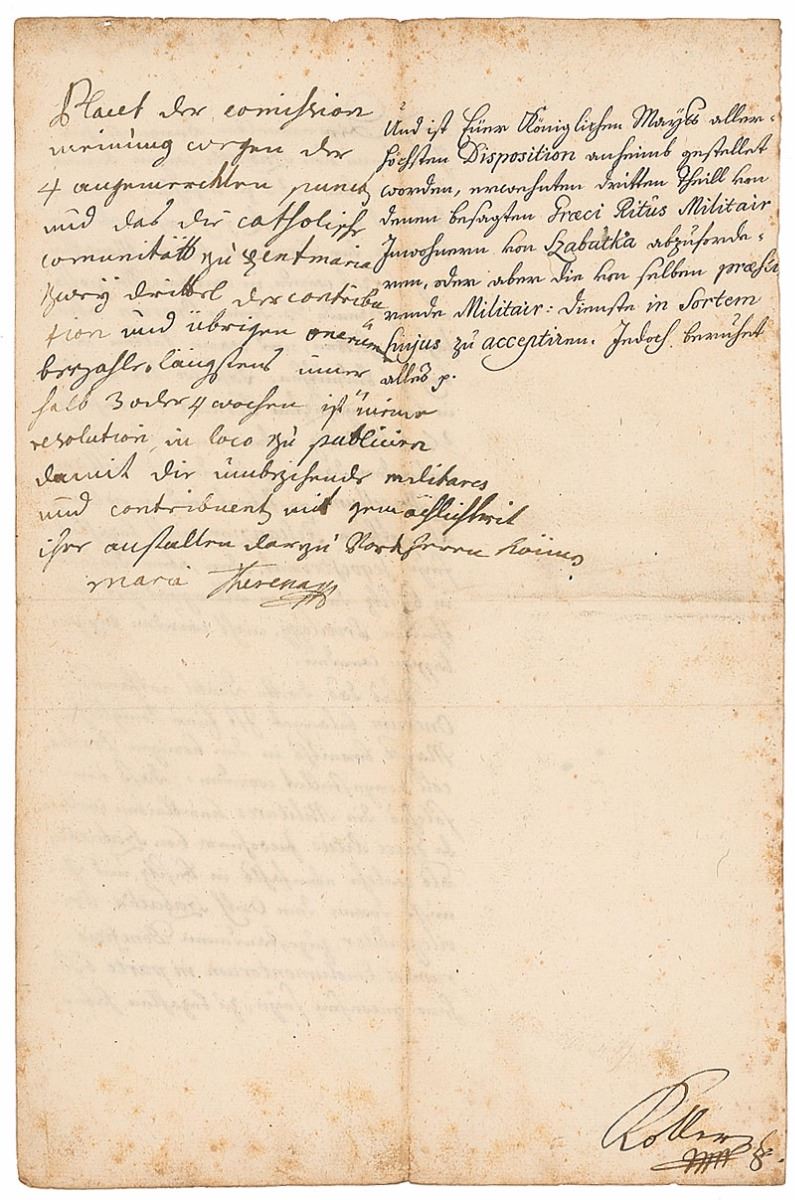 Placet der comission
meinung wegen der
4 angemerckten punct
und das die catholische
comunitätt zu Zentmaria
zwey drittel der contribu
tion und übrigen onerum
bezahle, längstens inner
halb 3 oder 4 wochen ist meine
resolution in loco zu publiciren
damit die umbzihende militares
und contribuenten mit gemächlichkeit
ihre anstalten darzu Vorkherren könen
Maria Theresia
Und ist Eüer Königlichen Mayst: aller-
höchsten Disposition anheimb gestellet
worden, erwehnten dritten Theill von
denen besagten Græci Ritûs Militair
Inwohnern von Szabatka abzuforde-
ren, oder aber die von selben præsti
rende Militair: dienste in Sortem
hujus zu acceptiren. Jedoch beruhet
alles p.
Koller